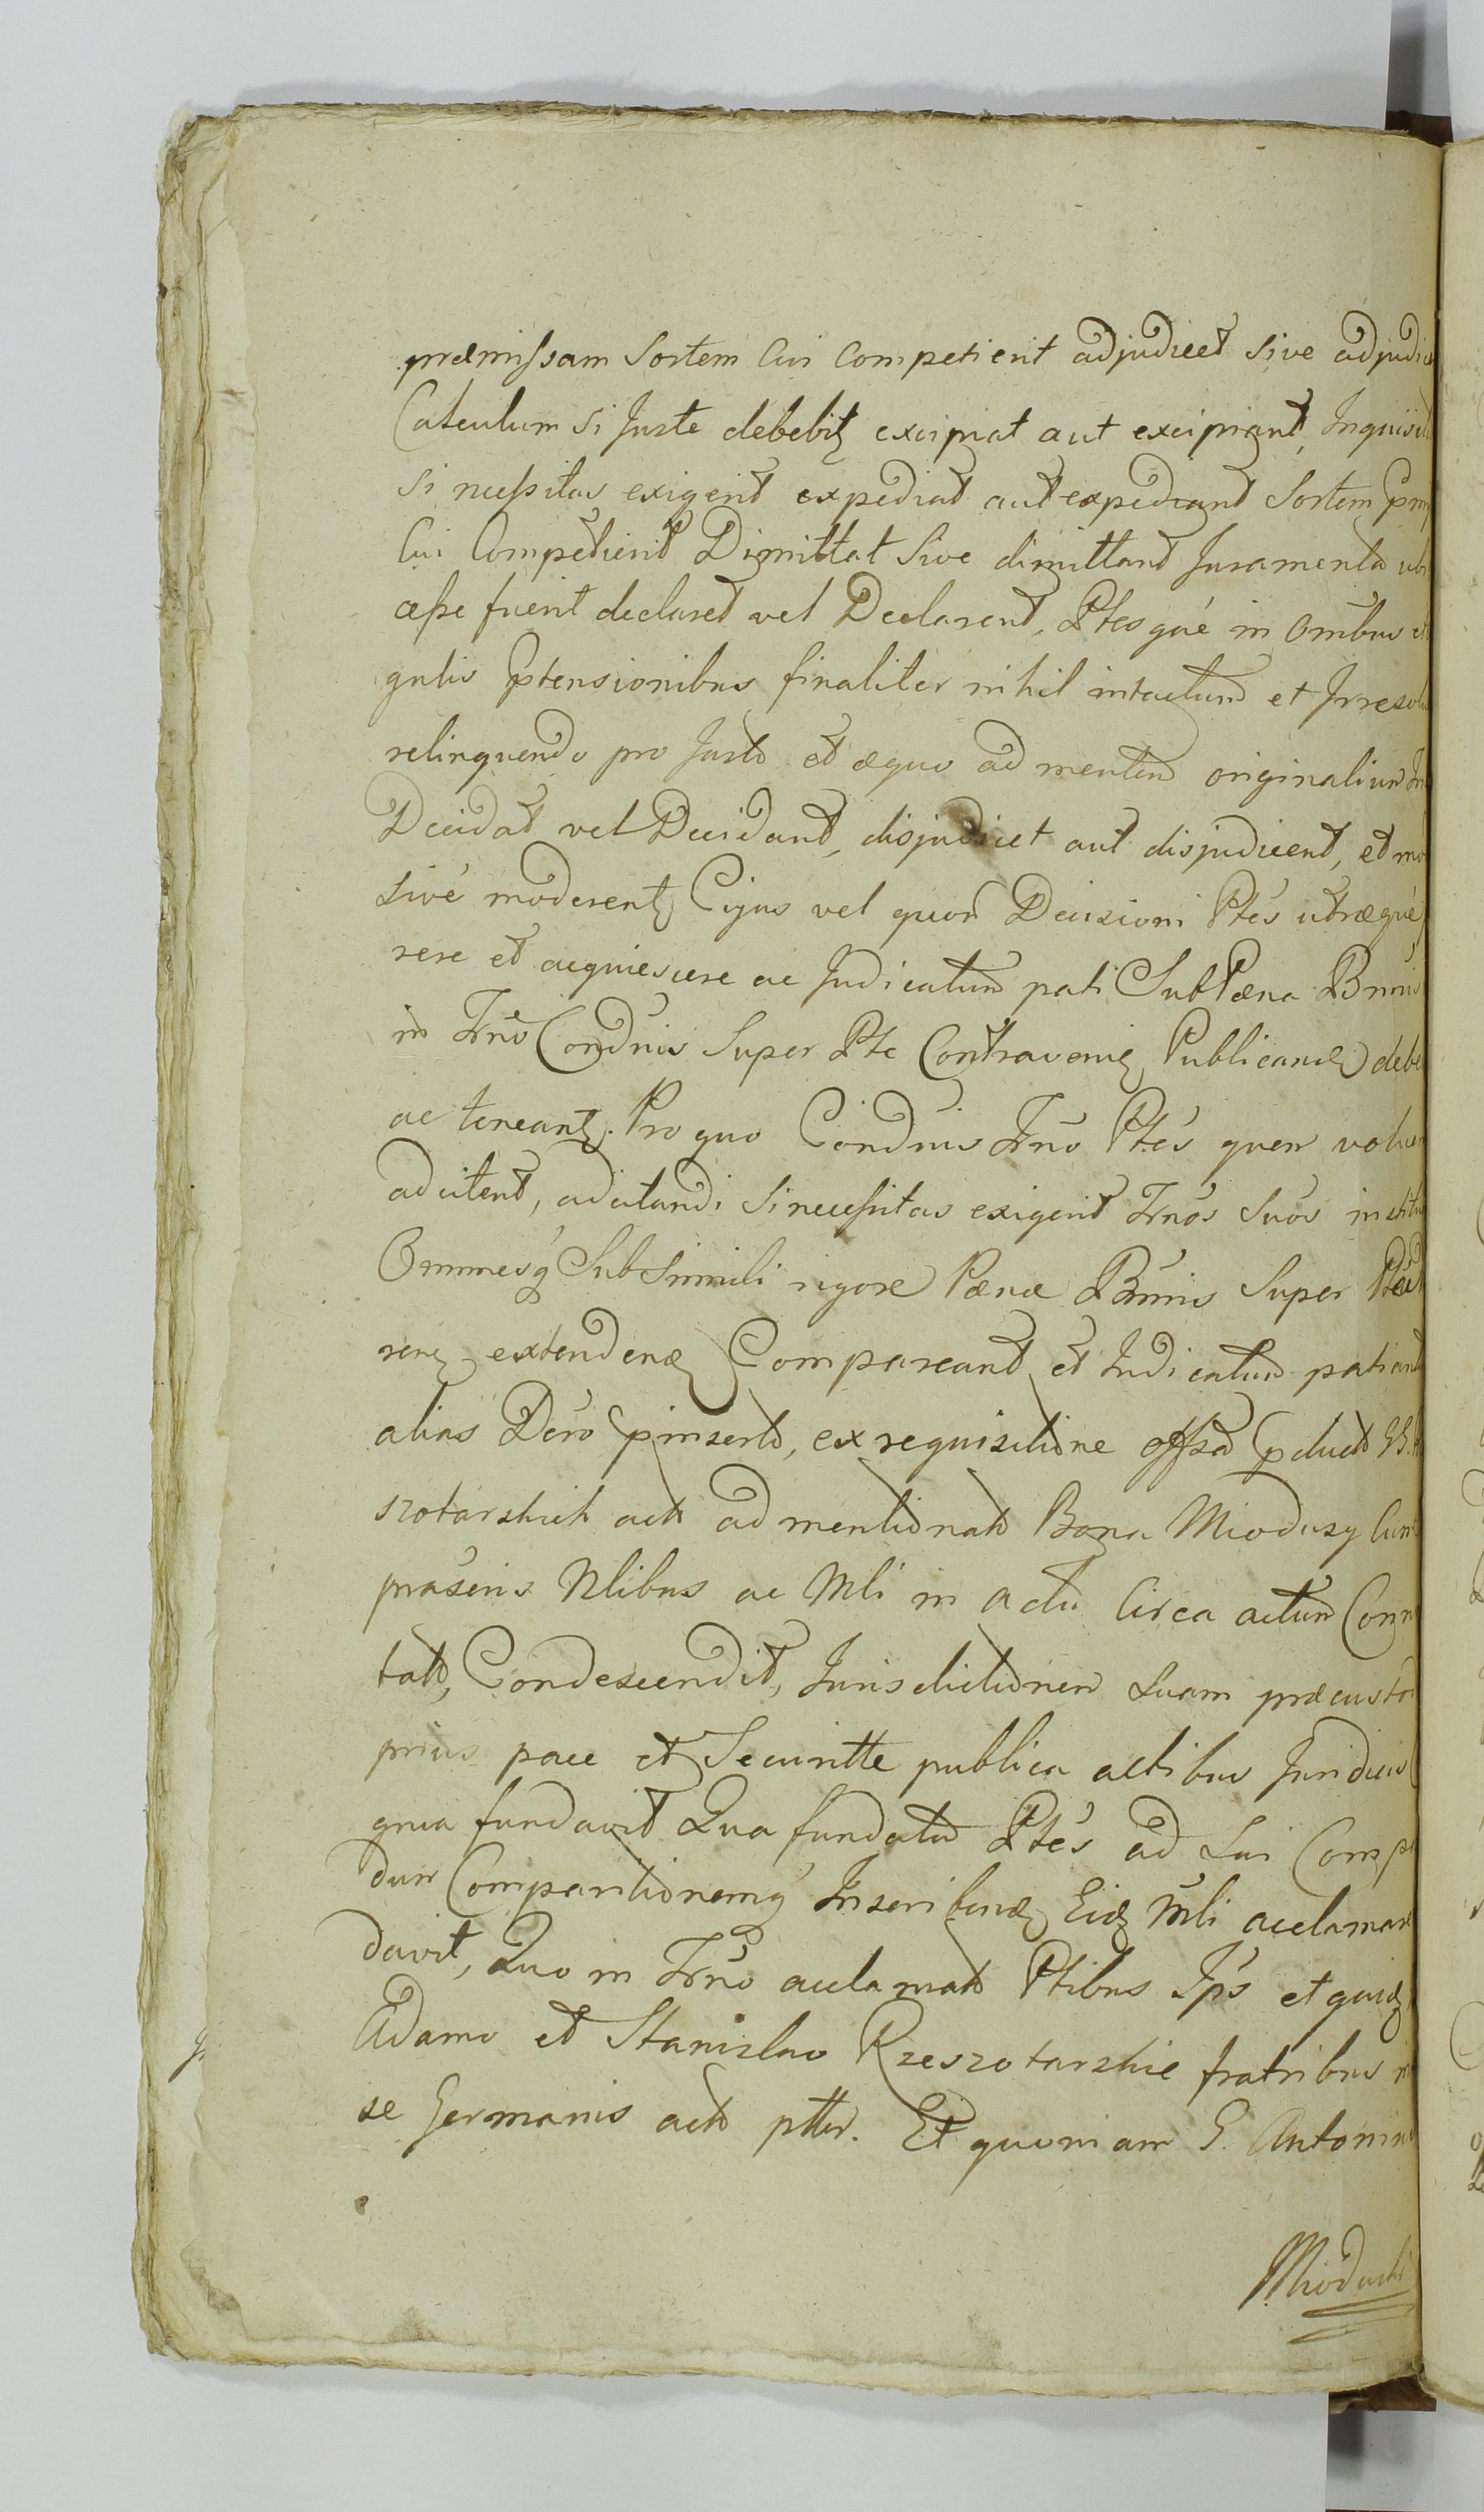 præmissam Sortem Cui Competierit adjudicet Sive adjudic
Calculum Si Juste debebit excipiat aut excipiant, Inquisit
Si necessitas exigerit expediat aut expediant Sortem
Cui Competierit Dimittat Sive dimittant Juramenta ubi
cesse fuerit declaret vel Declarent, Ptesqué in Omibus et
gulis Ptensionibus finaliter nihil intactum et Irresolu
relinquendo pro Justo et æquo ad mentem originalium
Decidat vel Decidant, disjudicet aut disjudicent, et mo
Sivé moderent Cujus vel quor Decisioni Ptés utræqué
rere et acquiescere ac Judicatum pati Sub Pæna Bnnis
in Trno Condnis Super Pte Contraven Publicand debe
ac teneant. Pro quo Condnis Trno Ptés quem volue
adcitent, adcitandi Si necessitas exigerit Trnos Suos institu
Omnesq Sub Simili rigore Pænæ Bnnis Super Pte
extenden Compareant et Judicatum patiant
alias Dcro pinserto, ex requisitione offsa pduct GG.
szotarskich acto ad mentionato Bona Miodusy Cum
præsens Nlibus ac Mli in actu Circa actum Conno
tato, Condescendit, Jurisdictionem Suam præcusto
prius pace et Securitte publica actibus Juridicis
qnia fundavit Qua fundata Ptés ad Sui Compa
dum Comparitionemq Inscribend Eid Mli acclamare
davit, Quo in Trno acclamato Ptibus Ips et quid
Adamo et Stanislao Rzeszotarskie fratribus
se Germanis acto ptter. Et quoniam G. Antonin
Mioduski